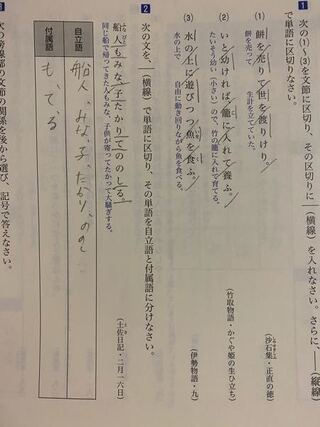 1 次の(1)~(3)を文節に区切り、その区切りに―(横線)を入れなさい。さらに、―(縦線)
で単語に区切りなさい。
(1) 餅を売りて世を渡りけり。
餅を売って 生計を立てていた。
(沙石集・正直の徳)
(2) いと幼ければ、籠に入れて養ふ。
たいそう幼い(小さい)ので、竹の籠に入れて育てる。
(竹取物語・かぐや姫の生ひ立ち)
(3) 水の上に遊びつつ魚を食ふ。
水の上で 自由に動き回りながら魚を食べる。
(伊勢物語・九)
2 次の文を、―(横線)で単語に区切り、その単語を自立語と付属語に分けなさい。
船人もみな、子たかりてののしる。
同じ船で帰ってきた人もみな、子供が寄ってたかって大騒ぎする。
(土佐日記・二月一六日)
自立語 船人、みな、子、たかり、のの
付属語 も、て、る
の傍線部の文節の関係を後から選び、記号で答えなさい。